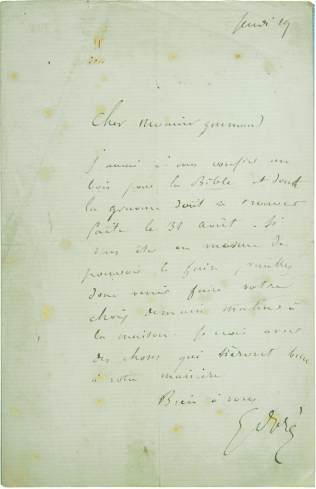 Jeudi 19
Cher Monsieur
j'aurai à vous confier un
bois pour la Bible et dont
la gravure doit se trouver
faite le 31 août. Si
vous êtes en mesure de
pouvoir le faire, veuillez
donc venir faire votre
choix demain matin à
la maison. Je crois avoir
des choses qui siéront bien
à votre manière
Bien à vous
G Doré